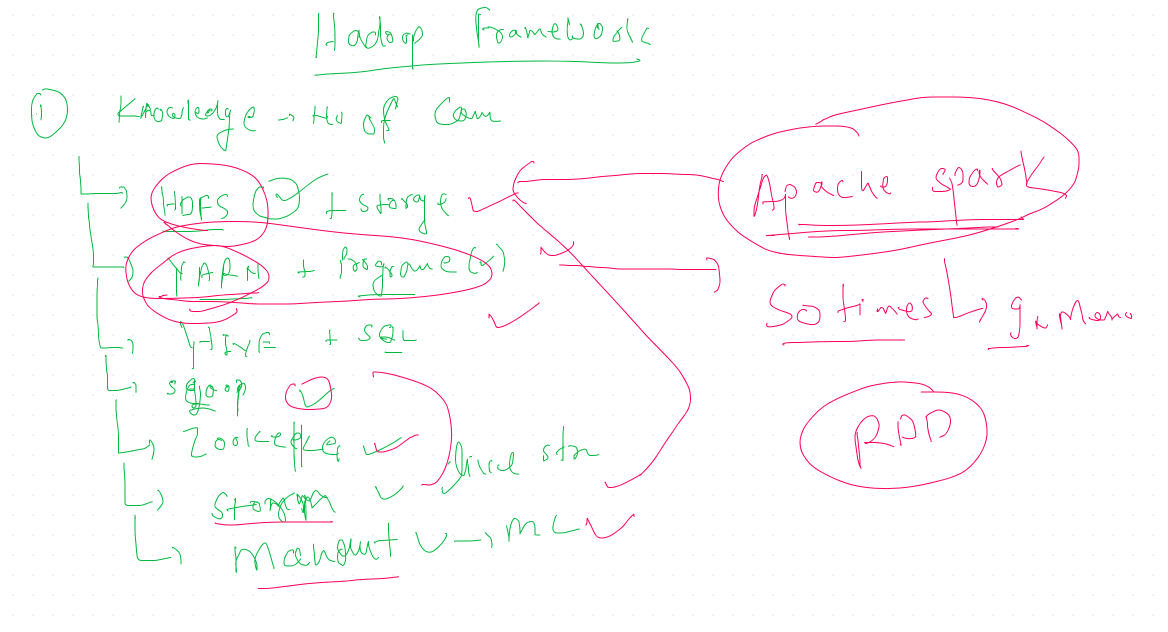 Hadoop Framework
① Knowledge → of Com
HDFS + Storge
YARN + Programe
HIVE + SQL
sqoop
Zookeeper
Storm
Mahout → ML
Apache spark
50 times
RDD